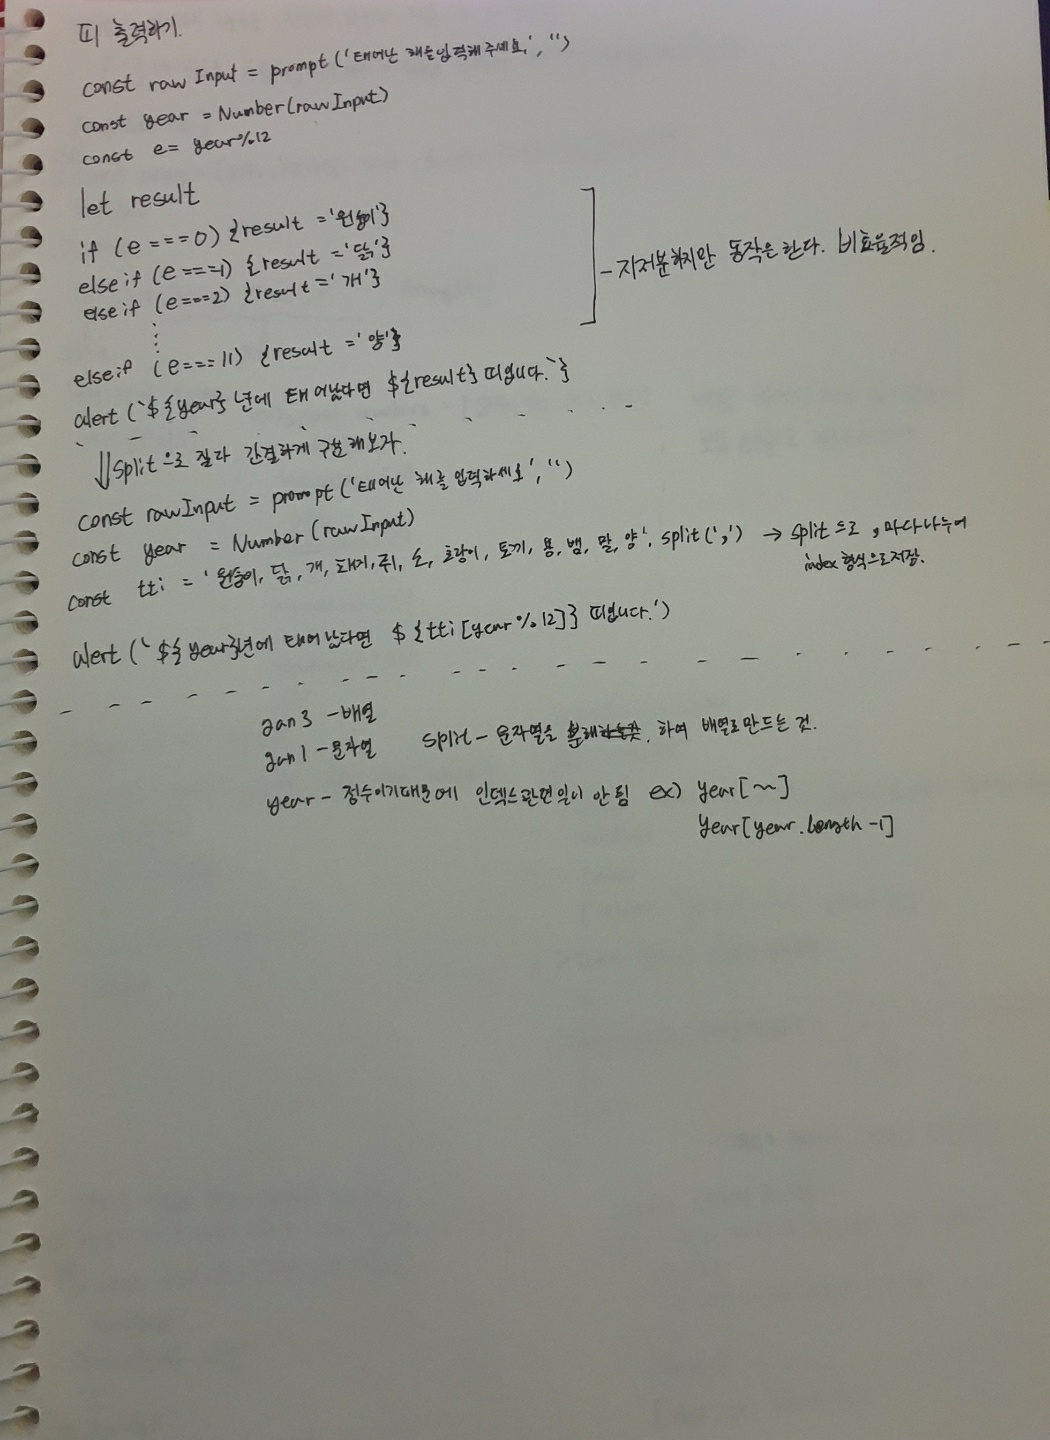 띠 출력하기.
const rawInput = prompt('태어난 해를입력해주세요,', '')
const year = Number(rawInput)
const e= year%12
let result
if (e===0) {result ='원숭이'}
else if (e===1) {result ='닭'}
else if (e===2) {result ='개'}
- 지저분하지만 동작은 한다. 비효율적임.
else if (e===11) {result ='양'}
alert(`${year}년에 태어났다면 ${result}띠입니다.`}
split으로 잘라 간결하게 구분해보자.
const rawInput = prompt('태어난 해를 입력하세요', '')
const year = Number(rawInput)
const tti = '원숭이, 닭, 개, 돼지, 쥐, 소, 호랑이, 토끼, 용, 뱀, 말, 양'. split(',') → split으로 , 마다나누어
index 형식으로저장.
alert(`${year}년에 태어났다면 ${tti[year%12]} 띠입니다.')
gan3 -배열
gan1 -문자열 split - 문자열을 분해하는것. 하여 배열로만드는 것.
year - 정수이기때문에 인덱스관련일이 안됨 ex) year[~]
year[year.length-1]